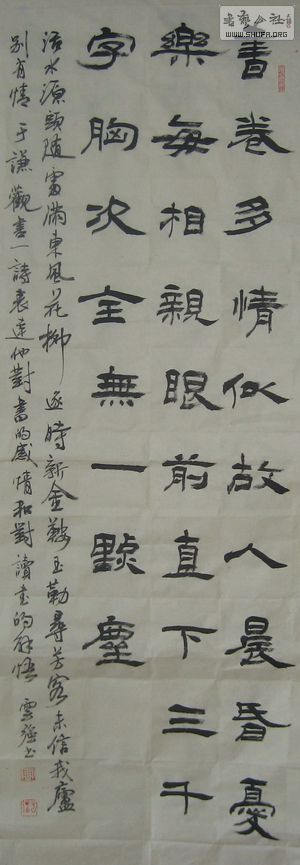 書藝公社
WWW.SHUFA.ORG
書卷多情似故人晨昏憂
樂每相親眼前直下三千
字胸次全無一點塵
活水源頭隨處滿東風花柳逐時新金鞍玉勒尋芳客未信我廬
別有情于謙觀書一詩表達他對書的感情和對讀書的解悟雲